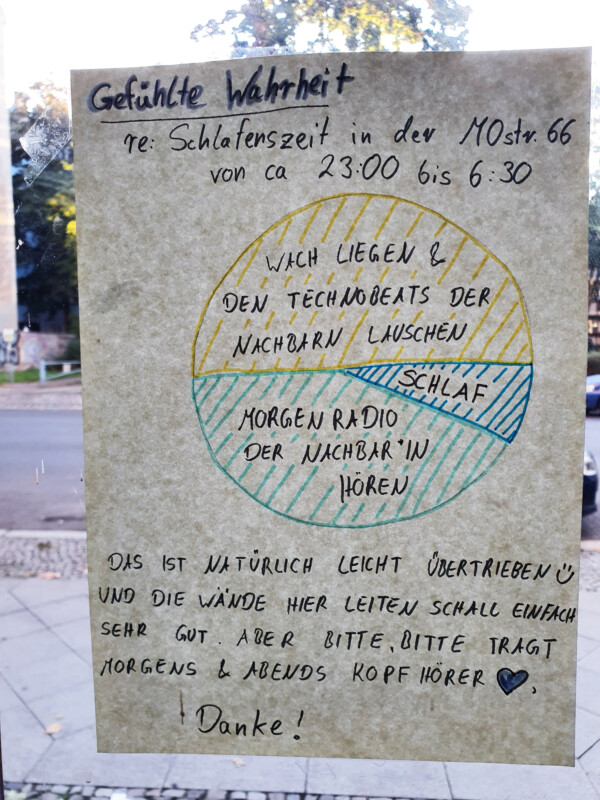 Gefühlte Wahrheit
re: Schlafenszeit in der MOstr. 66
von ca 23:00 bis 6:30
WACH LIEGEN &
DEN TECHNOBEATS DER
NACHBARN LAUSCHEN
SCHLAF
MORGEN RADIO
DER NACHBAR*IN
HÖREN
DAS IST NATÜRLICH LEICHT ÜBERTRIEBEN
UND DIE WÄNDE HIER LEITEN SCHALL EINFACH
SEHR GUT. ABER BITTE, BITTE TRAGT
MORGENS & ABENDS KOPFHÖRER ♥.
Danke!